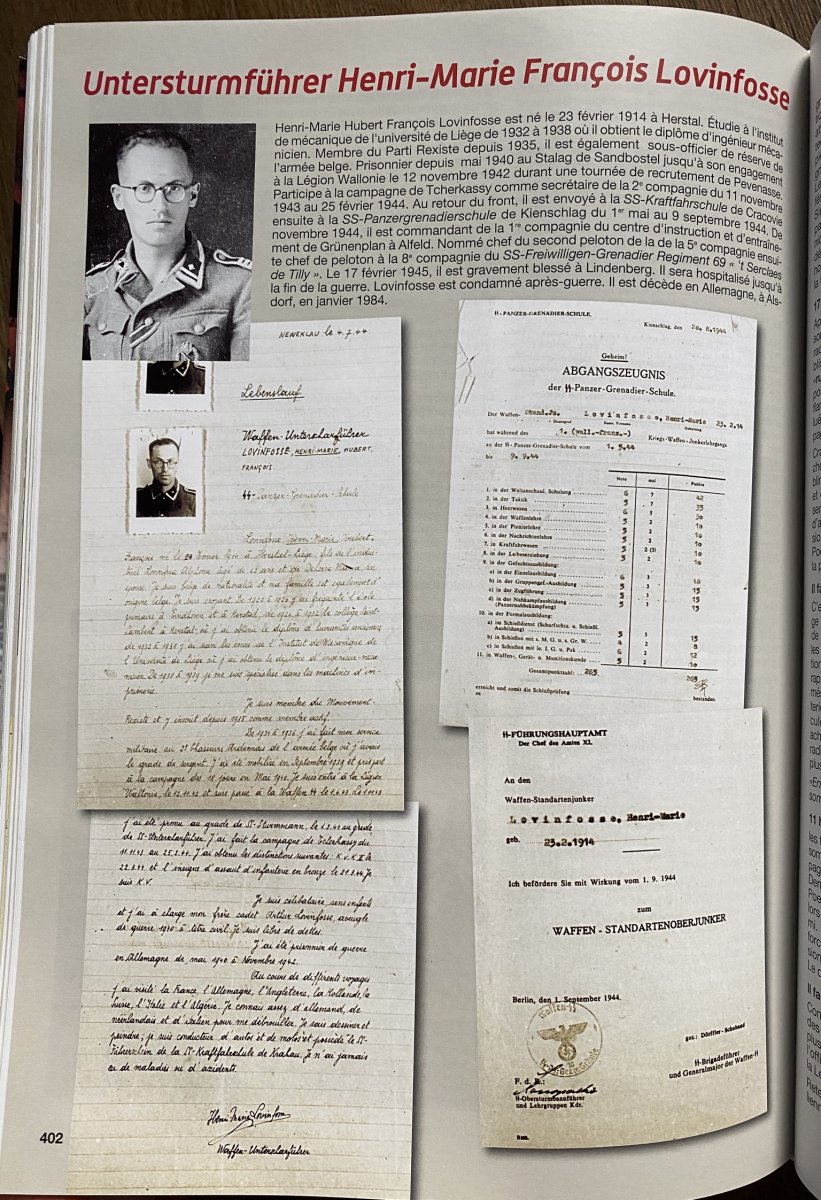 Untersturmführer Henri-Marie François Lovinfosse
Henri-Marie Hubert François Lovinfosse est né le 23 février 1914 à Herstal. Étudie à l'institut
de mécanique de l'université de Liège de 1932 à 1938 où il obtient le diplôme d'ingénieur méca-
nicien. Membre du Parti Rexiste depuis 1935, il est également sous-officier de réserve de
l'armée belge. Prisonnier depuis mai 1940 au Stalag de Sandbostel jusqu'à son engagement
à la Légion Wallonie le 12 novembre 1942 durant une tournée de recrutement de Pevenasse.
Participe à la campagne de Tcherkassy comme secrétaire de la 2e compagnie du 11 novembre
1943 au 25 février 1944. Au retour du front, il est envoyé à la SS-Kraftfahrschule de Cracovie
ensuite à la SS-Panzergrenadierschule de Kienschlag du 1er mai au 9 septembre 1944. De
novembre 1944, il est commandant de la 1re compagnie du centre d'instruction et d'entraîne-
ment de Grünenplan à Alfeld. Nommé chef du second peloton de la de la 5e compagnie ensui-
te chef de peloton à la 8e compagnie du SS-Freiwilligen-Grenadier Regiment 69 « 't Serclaes
de Tilly ». Le 17 février 1945, il est gravement blessé à Lindenberg. Il sera hospitalisé jusqu'à
la fin de la guerre. Lovinfosse est condamné après-guerre. Il est décède en Allemagne, à Als-
dorf, en janvier 1984.
NEWEKLAU le 4.7.44
Lebenslauf
Waffen-Unterscharführer
LOVINFOSSE, HENRI-MARIE, HUBERT,
FRANÇOIS.
SS-Panzer-Grenadier-Schule
Lovinfosse Henri-Marie, Hubert,
François né le 23 Février 1914 à Herstal-Liège, fils de l'indus-
triel Lovinfosse
épouse. Je suis belge de nationalité et ma famille est également d'
origine belge. Je suis croyant. De 1920 à 1926 j'ai fréquenté l'école
primaire à Eindhoven et à Herstal, de 1926 à 1932 le collège Saint-
Lambert à Herstal, où j'ai obtenu le diplôme d'humanités anciennes
de 1932 à 1938 j'ai suivi les cours de l'Institut de Mécanique de
l'Université de Liège où j'ai obtenu le diplôme d'ingénieur-méca-
nicien. De 1938 à 1939 je me suis spécialisé dans les machines d'im-
primerie.
Je suis membre du Mouvement
Rexiste et y inscrit depuis 1935 comme membre actif.
De 1934 à 1936 j'ai fait mon service
militaire au 3e Chasseurs Ardennais de l'armée belge où j'avais
le grade de sergent. J'ai été mobilisé en Septembre 1939 et pris part
à la campagne des 18 jours en Mai 1940. Je suis entré à la Légion
Wallonie, le 12.11.42 et suis passé à la Waffen SS le 1.6.43. Le 1.11.43
j'ai été promu au grade de SS-Sturmmann, le 1.2.44 au grade
de SS-Unterscharführer. J'ai fait la campagne de Tcherkassy du
11.11.43 au 25.2.44. J'ai obtenu les distinctions suivantes: K.v.K II le
22.3.44 et l'insigne d'assaut d'infanterie en bronze le 21.3.44. Je
suis K.V.
Je suis célibataire, sans enfants
et j'ai à charge mon frère cadet Arthur Lovinfosse, aveugle
de guerre 1940 à titre civil. Je suis libre de dettes.
J'ai été prisonnier de guerre
en Allemagne de mai 1940 à Novembre 1942.
Au cours de différents voyages
j'ai visité la France, l'Allemagne, l'Angleterre, la Hollande, la
Suisse, l'Italie et l'Algérie. Je connais assez d'allemand, de
néerlandais et d'italien pour me débrouiller. Je sais dessiner et
peindre; je suis conducteur d'autos et de motos et possède le SS-
Führerschein de la SS-Kraftfahrschule de Krakau. Je n'ai jamais
eu de maladies ni d'accidents.
Henri Marie Lovinfosse
Waffen-Unterscharführer
402
SS-PANZER-GRENADIER-SCHULE.
Kienschlag, den 20.8.1944
Geheim!
ABGANGSZEUGNIS
der SS-Panzer-Grenadier-Schule.
Der Waffen- Stand.Ju. Lovinfosse, Henri-Marie 23.2.14
Dienstgrad Name, Vorname Geburtstag
hat während des 1. (wall.-franz.) Kriegs-Waffen-Junkerlehrgangs
an der SS-Panzer-Grenadier-Schule vom 1.5.44
bis 9.9.44
Note mal Punkte
1. in der Weltanschaul. Schulung 6 7 42
2. in der Taktik 5 7 35
3. in Heerwesen 6 5 30
4. in der Waffenlehre 5 2 10
5. in der Pionierlehre 5 2 10
6. in der Nachrichtenlehre 5 2 10
7. in Kraftfahrwesen 5 2 (3) 10
8. in der Leibeserziehung 5 2 10
9. in der Gefechtsausbildung:
a) in der Einzelausbildung 6 3 18
b) in der Gruppengef.-Ausbildung 5 3 15
c) in der Zugführung 5 3 15
d) in der Nahkampfausbildung 5 3 15
(Panzernahbekämpfung)
10. in der Formalausbildung:
a) im Schießdienst (Scharfschtz. u. Schießl.
Ausbildung) 5 3 15
b) in Schießen mit s. M. G. u. s. Gr. W. 4 2 8
c) in Schießen mit le. I. G. u. Pak 6 2 12
11. in Waffen-, Gerät- u. Munitionskunde 5 2 10
Gesamtpunktzahl: 265 265
erreicht und somit die Schlußprüfung bestanden.
SS-FÜHRUNGSHAUPTAMT
Der Chef des Amtes XI.
An den
Waffen-Standartenjunker
Lovinfosse, Henri-Marie
geb. 23.2.1914
Ich befördere Sie mit Wirkung vom 1. 9. 1944
zum
WAFFEN - STANDARTENOBERJUNKER
Berlin, den 1. September 1944.
gez.: Dörffler-Schuband
SS-Brigadeführer
und Generalmajor der Waffen-SS
Waffen-SS
F. d. R.:
SS-Obersturmbannführer
und Lehrgruppen Kdr.